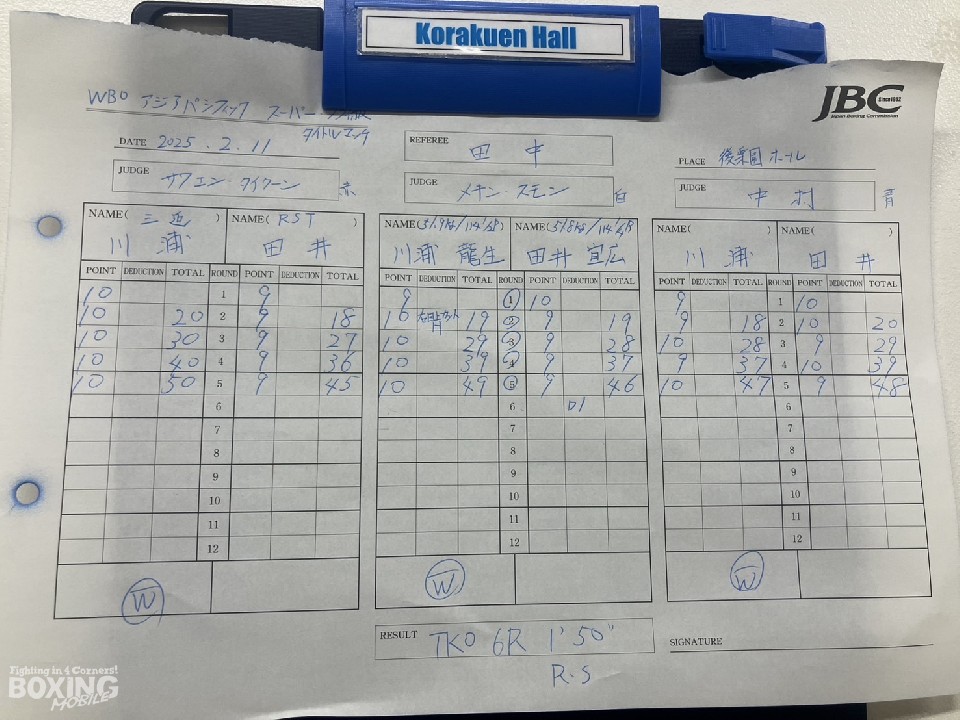 Korakuen Hall
WBO アジアパシフィック スーパーフライ級
タイトルマッチ
JBC Since1952
Japan Boxing Commission
DATE 2025.2.11
REFEREE 田中
PLACE 後楽園ホール
JUDGE サノエン・タイクーン 赤
JUDGE メキン・スモン 白
JUDGE 中村 青
NAME( 三迫 ) NAME( RST ) NAME( 51.9kg/114 1/4LB ) NAME( 51.8kg/114 1/4LB ) NAME( ) NAME( )
川浦 田井 川浦 龍生 田井 宜広 川浦 田井
POINT DEDUCTION TOTAL ROUND POINT DEDUCTION TOTAL POINT DEDUCTION TOTAL ROUND POINT DEDUCTION TOTAL POINT DEDUCTION TOTAL ROUND POINT DEDUCTION TOTAL
10 1 9 9 1 10 9 1 10
10 20 2 9 18 10 19 2 9 19 9 18 2 10 20
10 30 3 9 27 10 29 3 9 28 10 28 3 9 29
10 40 4 9 36 10 39 4 9 37 9 37 4 10 39
10 50 5 9 45 10 49 5 9 46 10 47 5 9 48
6 6 6
7 7 7
8 8 8
9 9 9
10 10 10
11 11 11
12 12 12
W W W
RESULT TKO 6R 1'50"
R.S
SIGNATURE
Fighting in 4 Corners!
BOXING
MOBILE